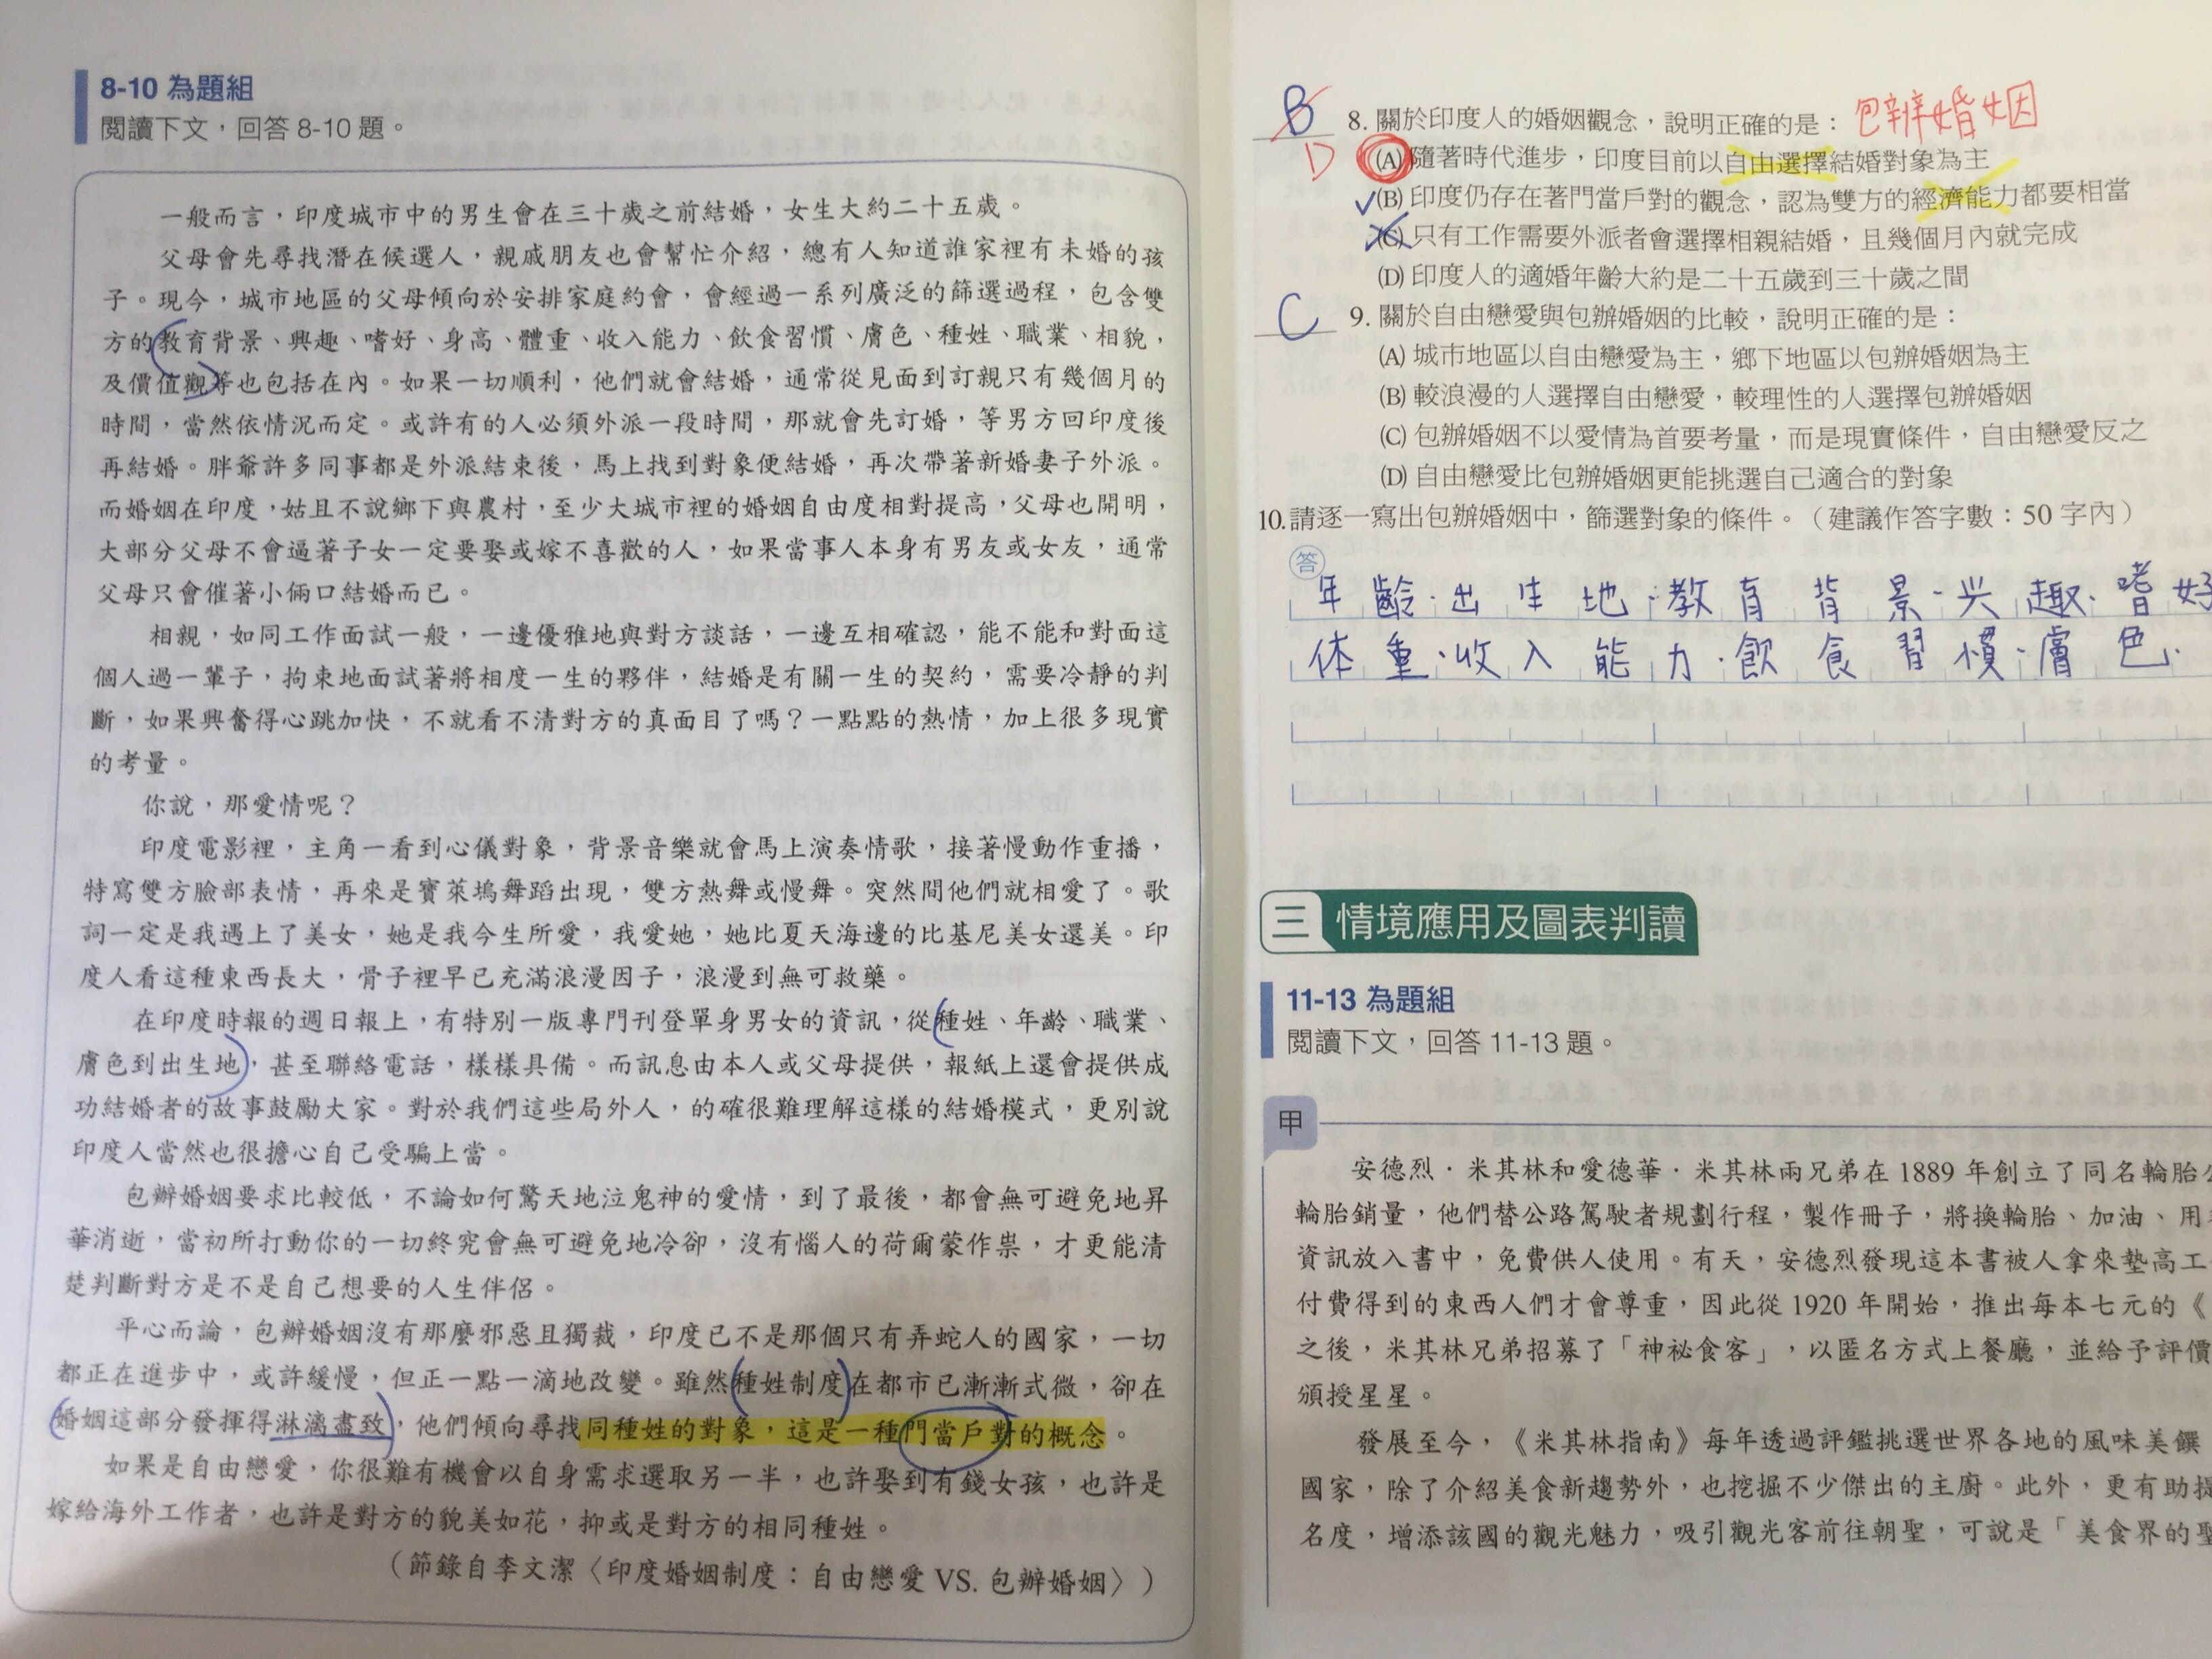 8-10 為題組
閱讀下文，回答 8-10 題。
一般而言，印度城市中的男生會在三十歲之前結婚，女生大約二十五歲。
父母會先尋找潛在候選人，親戚朋友也會幫忙介紹，總有人知道誰家裡有未婚的孩
子。現今，城市地區的父母傾向於安排家庭約會，會經過一系列廣泛的篩選過程，包含雙
方的教育背景、興趣、嗜好、身高、體重、收入能力、飲食習慣、膚色、種姓、職業、相貌，
及價值觀等也包括在內。如果一切順利，他們就會結婚，通常從見面到訂親只有幾個月的
時間，當然依情況而定。或許有的人必須外派一段時間，那就會先訂婚，等男方回印度後
再結婚。胖爺許多同事都是外派結束後，馬上找到對象便結婚，再次帶著新婚妻子外派。
而婚姻在印度，姑且不說鄉下與農村，至少大城市裡的婚姻自由度相對提高，父母也開明，
大部分父母不會逼著子女一定要娶或嫁不喜歡的人，如果當事人本身有男友或女友，通常
父母只會催著小倆口結婚而已。
相親，如同工作面試一般，一邊優雅地與對方談話，一邊互相確認，能不能和對面這
個人過一輩子，拘束地面試著將相度一生的夥伴，結婚是有關一生的契約，需要冷靜的判
斷，如果興奮得心跳加快，不就看不清對方的真面目了嗎？一點點的熱情，加上很多現實
的考量。
你說，那愛情呢？
印度電影裡，主角一看到心儀對象，背景音樂就會馬上演奏情歌，接著慢動作重播，
特寫雙方臉部表情，再來是寶萊塢舞蹈出現，雙方熱舞或慢舞。突然間他們就相愛了。歌
詞一定是我遇上了美女，她是我今生所愛，我愛她，她比夏天海邊的比基尼美女還美。印
度人看這種東西長大，骨子裡早已充滿浪漫因子，浪漫到無可救藥。
在印度時報的週日報上，有特別一版專門刊登單身男女的資訊，從種姓、年齡、職業、
膚色到出生地，甚至聯絡電話，樣樣具備。而訊息由本人或父母提供，報紙上還會提供成
功結婚者的故事鼓勵大家。對於我們這些局外人，的確很難理解這樣的結婚模式，更別說
印度人當然也很擔心自己受騙上當。
包辦婚姻要求比較低，不論如何驚天地泣鬼神的愛情，到了最後，都會無可避免地昇
華消逝，當初所打動你的一切終究會無可避免地冷卻，沒有惱人的荷爾蒙作祟，才更能清
楚判斷對方是不是自己想要的人生伴侶。
平心而論，包辦婚姻沒有那麼邪惡且獨裁，印度已不是那個只有弄蛇人的國家，一切
都正在進步中，或許緩慢，但正一點一滴地改變。雖然種姓制度在都市已漸漸式微，卻在
婚姻這部分發揮得淋漓盡致，他們傾向尋找同種姓的對象，這是一種門當戶對的概念。
如果是自由戀愛，你很難有機會以自身需求選取另一半，也許娶到有錢女孩，也許是
嫁給海外工作者，也許是對方的貌美如花，抑或是對方的相同種姓。
（節錄自李文潔〈印度婚姻制度：自由戀愛 VS. 包辦婚姻〉）
B 8. 關於印度人的婚姻觀念，說明正確的是： 包辦婚姻
D (A) 隨著時代進步，印度目前以自由選擇結婚對象為主
(B) 印度仍存在著門當戶對的觀念，認為雙方的經濟能力都要相當
(C) 只有工作需要外派者會選擇相親結婚，且幾個月內就完成
(D) 印度人的適婚年齡大約是二十五歲到三十歲之間
C 9. 關於自由戀愛與包辦婚姻的比較，說明正確的是：
(A) 城市地區以自由戀愛為主，鄉下地區以包辦婚姻為主
(B) 較浪漫的人選擇自由戀愛，較理性的人選擇包辦婚姻
(C) 包辦婚姻不以愛情為首要考量，而是現實條件，自由戀愛反之
(D) 自由戀愛比包辦婚姻更能挑選自己適合的對象
10. 請逐一寫出包辦婚姻中，篩選對象的條件。（建議作答字數：50 字內）
答
年齡．出生地．教育背景．兴趣．嗜好
体重．收入能力．飲食習慣．膚色．
三 情境應用及圖表判讀
11-13 為題組
閱讀下文，回答 11-13 題。
甲
安德烈．米其林和愛德華．米其林兩兄弟在 1889 年創立了同名輪胎
輪胎銷量，他們替公路駕駛者規劃行程，製作冊子，將換輪胎、加油、用
資訊放入書中，免費供人使用。有天，安德烈發現這本書被人拿來墊高工
付費得到的東西人們才會尊重，因此從 1920 年開始，推出每本七元的《
之後，米其林兄弟招募了「神祕食客」，以匿名方式上餐廳，並給予評價
頒授星星。
發展至今，《米其林指南》每年透過評鑑挑選世界各地的風味美饌
國家，除了介紹美食新趨勢外，也挖掘不少傑出的主廚。此外，更有助提
名度，增添該國的觀光魅力，吸引觀光客前往朝聖，可說是「美食界的聖